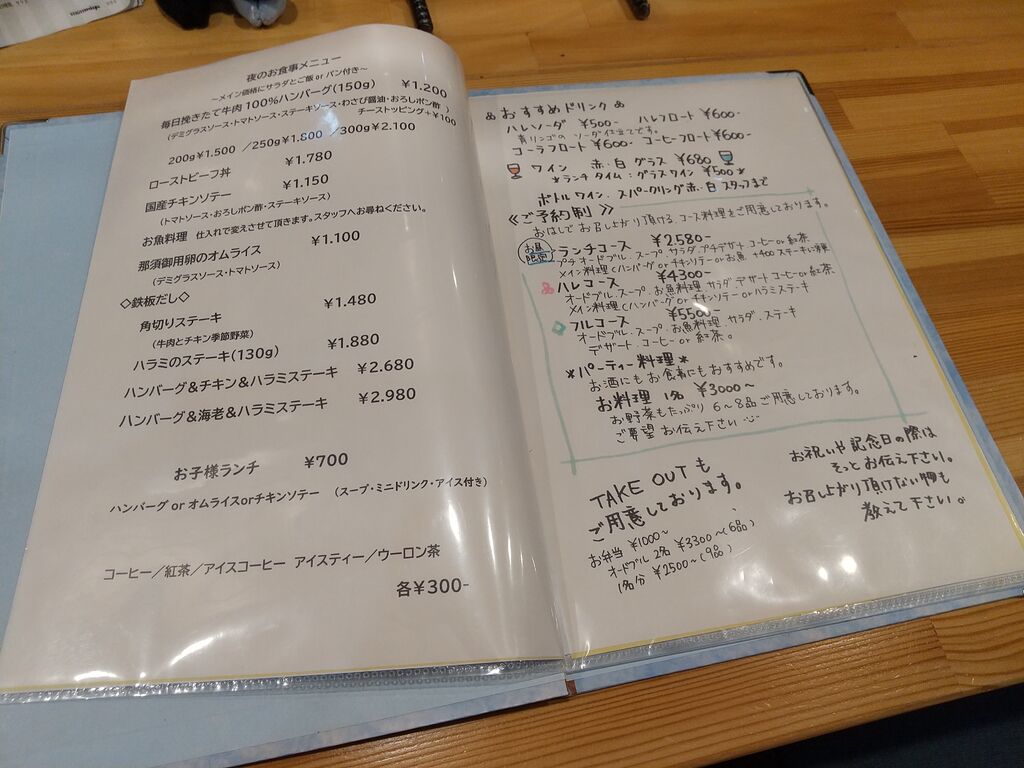 夜のお食事メニュー
～メイン価格にサラダとご飯 or パン付き～
毎日挽きたて牛肉 100%ハンバーグ(150g) ¥1.200
(デミグラスソース・トマトソース・ステーキソース・わさび醤油・おろしポン酢 )
チーストッピング+¥100
200g¥1.500 /250g¥1.800 /300g¥2.100
ローストビーフ丼 ¥1.780
国産チキンソテー ¥1.150
(トマトソース・おろしポン酢・ステーキソース)
お魚料理 仕入れで変えさせて頂きます。スタッフへお尋ねください。
那須御用卵のオムライス ¥1.100
(デミグラスソース・トマトソース)
◇鉄板だし◇
角切りステーキ ¥1.480
(牛肉とチキン季節野菜)
ハラミのステーキ(130g) ¥1.880
ハンバーグ&チキン&ハラミステーキ ¥2.680
ハンバーグ&海老&ハラミステーキ ¥2.980
お子様ランチ ¥700
ハンバーグ or オムライスorチキンソテー (スープ・ミニドリンク・アイス付き)
コーヒー/紅茶/アイスコーヒー アイスティー/ウーロン茶
各¥300-
おすすめドリンク
ハレソーダ ¥500- ハレフロート ¥600-
青リンゴの ソーダ仕立てです。
コーラフロート ¥600- コーヒーフロート ¥600-
ワイン 赤・白 グラス ¥680
*ランチタイム:グラスワイン ¥500*
ボトルワイン、スパークリング赤、白 スタッフまで
≪ご予約制≫
おはしでお召し上がり頂ける、コース料理をご用意しております。
お昼限定 ランチコース ¥2.580-
プチオードブル、スープ、サラダ、プチデザート コーヒーor紅茶
メイン料理(ハンバーグ or チキンソテー or お魚 +400 ステーキに
ハレコース ¥4300-
オードブル、スープ、お魚料理、サラダ、デザート コーヒーor紅茶
メイン料理(ハンバーグ or チキンソテー or ハラミステーキ
フルコース ¥5500-
オードブル、スープ、お魚料理、サラダ、ステーキ
デザート、コーヒー or 紅茶。
*パーティー料理*
お酒にもお食事にもおすすめです。
お料理 1名 ¥3000～
お野菜もたっぷり 6～8品ご用意しております。
ご要望 お伝え下さい
TAKE OUT も
ご用意しております。
お弁当 ¥1000～
オードブル 2名 ¥3300～(6品)
1名分 ¥2500～(9品)
お祝いや記念日の際は
そっとお伝え下さい。
お召し上がり頂けない物も
教えて下さい。